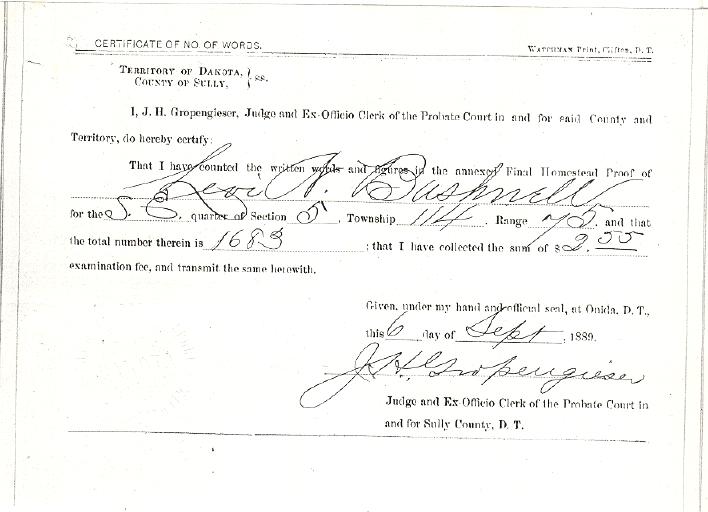 CERTIFICATE OF NO. OF WORDS. WATCHMAN Print, Clifton, D. T.
TERRITORY OF DAKOTA, } ss.
COUNTY OF SULLY,
I, J. H. Gropengieser, Judge and Ex-Officio Clerk of the Probate Court in and for said County and
Territory, do hereby certify:
That I have counted the written words and figures in the annexed Final Homestead Proof of
Levi N. Bushnell
for the S. E. quarter of Section 5, Township 114, Range 75, and that
the total number therein is 1683 ; that I have collected the sum of $2.55
examination fee, and transmit the same herewith.
Given, under my hand and official seal, at Onida, D. T.,
this 6 day of Sept, 1889.
J. H. Gropengieser
Judge and Ex-Officio Clerk of the Probate Court in
and for Sully County, D. T.